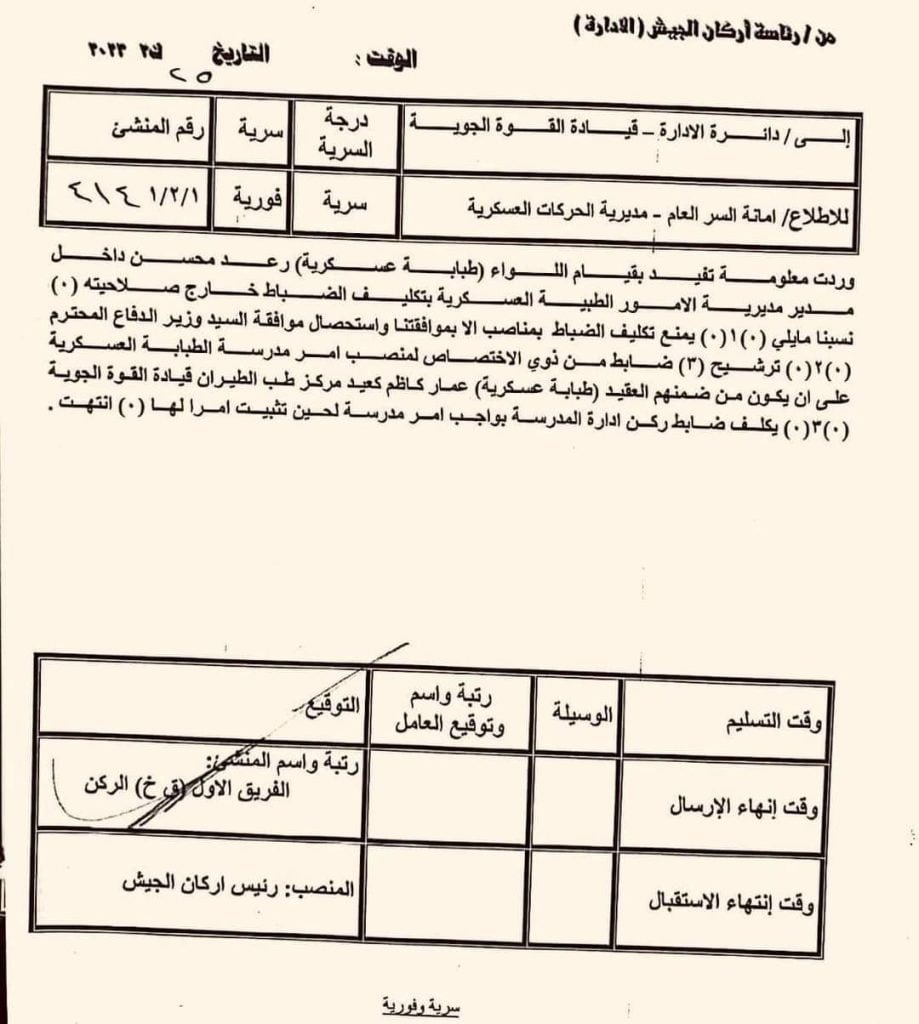 من / رئاسة أركان الجيش (الادارة)
الوقت : التاريخ ٢٥ ك٢ ٢٠٢٣
إلــى / دائــرة الادارة – قيــادة القــوة الجويــة
درجة السرية
سرية
رقم المنشئ
للاطلاع/ امانة السر العام – مديرية الحركات العسكرية
سرية
فورية
١/٢/١ ٤١٤
وردت معلومــة تفيــد بقيــام اللــواء (طبابــة عســكرية) رعــد محســن داخــل
مــدير مديريــة الامــور الطبيــة العســكرية بتكليــف الضــباط خــارج صــلاحيته (٠)
نسبنا مايلي (٠)١(٠) يمنع تكليف الضباط بمناصب الا بموافقتنا واستحصال موافقة السيد وزير الدفاع المحترم
(٠)٢(٠) ترشيح (٣) ضابط من ذوي الاختصاص لمنصب امر مدرسة الطبابة العسكرية
على ان يكون من ضمنهم العقيد (طبابة عسكرية) عمار كاظم كعيد مركز طب الطيران قيادة القوة الجوية
(٠)٣(٠) يكلف ضابط ركن ادارة المدرسة بواجب امر مدرسة لحين تثبيت امرا لها (٠) انتهت .
وقت التسليم
الوسيلة
رتبة واسم
وتوقيع العامل
التوقيع
وقت إنهاء الإرسال
رتبة واسم المنشئ:
الفريق الاول (ق خ) الركن
وقت إنتهاء الاستقبال
المنصب: رئيس اركان الجيش
سرية وفورية